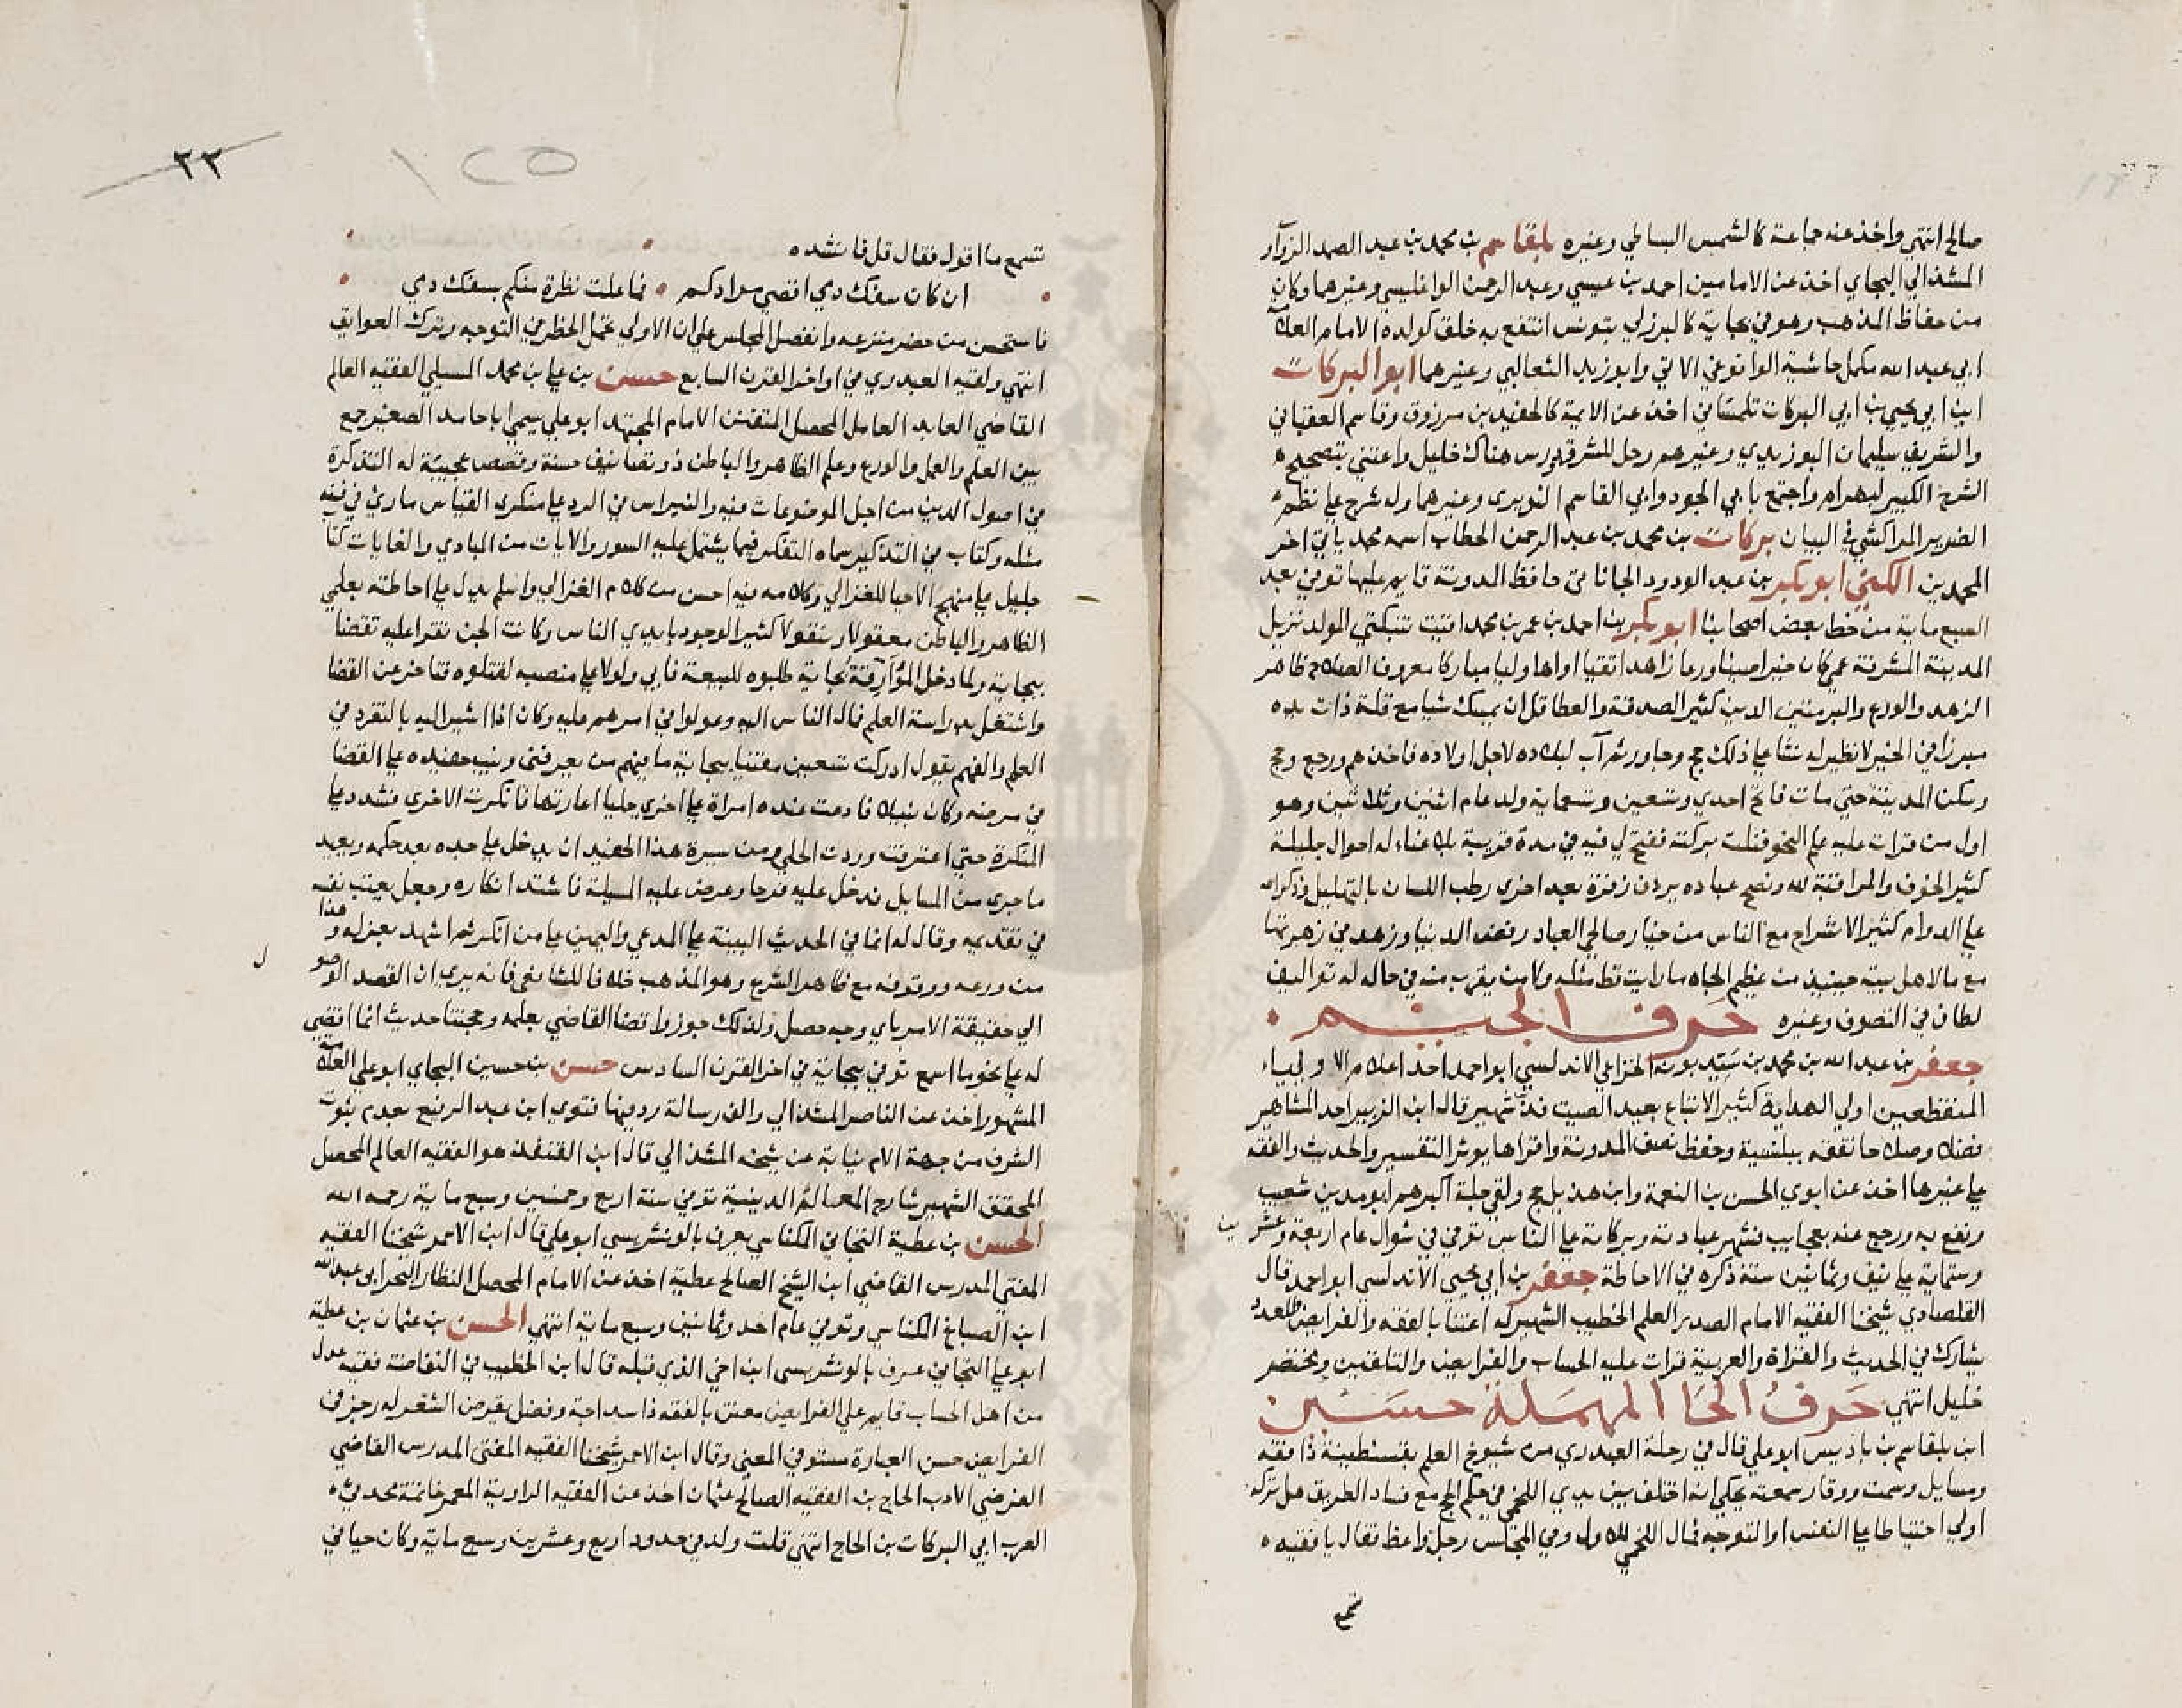 صالح انتهى واخذ عنه جماعة كالشمس البساطي وغيره بلقاسم بن محمد بن عبد الصمد الزواوي
المشذالي البجاي اخذ عن الامامين احمد بن عيسي وعبد الرحمن الواغليسي وغيرهما وكان
من حفاظ المذهب وهو في بجاية كالبرزلي بتونس انتفع به خلق كولده الامام العلامة
ابي عبد الله مكمل حاشية الوانوغي الاتي وابو زيد الثعالبي وغيرهما ابو البركات
ابن ابي يحيي بن ابي البركات تلمساني اخذ عن الايمة كالحفيد بن مرزوق وقاسم العقباني
والشريف سليمان البوزيدي وغيرهم رحل للمشرق ودرس هناك خليل واعتني بتصحيح
الشرح الكبير لبهرام واجتمع بابي الجود وابي القاسم النويري وغيرهما وله شرح علي نظم
الضرير المراكشي في البيان بركات بن محمد بن عبد الرحمن الحطاب اسمه محمد ياتي اخر
المحمدين الكني ابو بكر بن عبد الودود الجاناتي حافظ المدونة قايم عليها توفي بعد
السبع ماية من خط بعض اصحابنا ابو بكر بن احمد بن عمر بن محمد اقيت تنبكتي المولد نزيل
المدينة المشرفة عمي كان خيرا صينا ورعا زاهدا تقيا اواها وليا مباركا معروف الصلاح ظاهر
الزهد والورع والبر متين الدين كثير الصدقة والعطا قل ان يمسك شيا مع قلة ذات يده
مبرزا في الخير لا نظير له نشا علي ذلك حج وجاور ثم آب لبلاده لاجل اولاده فاخذهم ورجع وحج
وسكن المدينة حتي مات فاتح احدي وتسعين وتسعماية ولد عام اثنين وثلاثين وهو
اول من قرات عليه علم النحو فنلت بركته ففتح لي فيه في مدة قريبة بلا عناء له احوال جليلة
كثير الخوف والمراقبة لله ونصح عباده يردف زفرة بعد اخري رطب اللسان بالتهليل وذكر الله
علي الدوام كثير الانشراح مع الناس من خيار صالحي العباد رفض الدنيا وزهد في زهرتها
مع ما لاهل بيته حينيذ من عظيم الجاه ما رايت قط مثله ولا من يقرب منه في حاله له تواليف
لطاف في التصوف وغيره حرف الجيم
جعفر بن عبد الله بن محمد بن سيد بونه الخزاعي الاندلسي ابو احمد احد اعلام الاولياء
المنقطعين اولي الهداية كثير الاتباع بعيد الصيت فذ شهير قال ابن الزبير احد المشاهير
فضلا وصلاحا تفقه ببلنسية وحفظ نصف المدونة واقراها يوثر التفسير والحديث والفقه
علي غيرها اخذ عن ابوي الحسن بن النعمة وابن هذيل حج ولقي جلة اكبرهم ابو مدين شعيب
ونفع به ورجع عنه بعجايب فشهر عبادته وبركاته علي الناس توفي في شوال عام اربعة وعشرين
وستماية علي نيف وثمانين سنة ذكره في الاحاطة جعفر بن ابي يحيي الاندلسي ابو احمد قال
القلصادي شيخنا الفقيه الامام الصدر العلم الخطيب الشهير له اعتنا بالفقه والفرايض والعدد
يشارك في الحديث والقراة والعربية قرات عليه الحساب والفرايض والتلقين ومختصر
خليل انتهي حرف الحا المهملة حسين
ابن بلقاسم بن باديس ابو علي قال في رحلة العبدري من شيوخ العلم بقسنطينة ذا فقه
ومسايل وسمت ووقار سمعته يحكي انه اختلف بين يدي اللخمي في حكم الحج مع فساد الطريق هل تركه
اولي احتياطا علي النفس او التوجه فمال اللخمي للاول وفي المجلس رجل واعظ فقال يا فقيه
تسمع
٢٢
١٢٥
تسمع ما اقول فقال قل فانشده
ان كان سفك دمي اقصي مرادكم فما غلت نظرة منكم بسفك دمي
فاستحسن من حضر منزعه وانفصل المجلس علي ان الاولي تحمل الخطر في التوجه وترك العوايق
انتهي ولقيه العبدري في اواخر القرن السابع حسن بن علي بن محمد المسيلي الفقيه العالم
القاضي العابد العامل المحصل المتفنن الامام المجتهد ابو علي يسمي ابا حامد الصغير جمع
بين العلم والعمل والورع وعلم الظاهر والباطن ذو تصانيف حسنة وقصص عجيبة له التذكرة
في اصول الدين من اجل الموضوعات فيه والنبراس في الرد علي منكري القياس ما ري في فنه
مثله وكتاب في التذكير سماه التفكر فيما يشتمل عليه السور والايات من المبادي والغايات كتاب
جليل علي منهج الاحيا للغزالي وكلامه فيه احسن من كلام الغزالي واسلم يدل علي احاطته بعلمي
الظاهر والباطن معقولا ومنقولا كثير الوجود بايدي الناس وكانت الجن تقرا عليه تقضا
ببجاية ولما دخل الموارقة بجاية طلبوه للبيعة فابي ولولا علي منصبه لقتلوه فتاخر عن القضا
واشتغل بدراسة العلم فمال الناس اليه وعولوا في امرهم عليه وكان اذا اشير اليه بالتفرد في
العلم والفهم يقول ادركت تسعين مفتيا ببجاية ما منهم من يعرفني وينيب حفيده علي القضا
في مرضه وكان نبيلا فادعت عنده امراة علي اخري حليا اعارتها فانكرت الاخري فشدد علي
المنكرة حتي اعترفت وردت الحلي ومن سيرة هذا الحفيد ان يدخل علي جده بعد حكمه ويعيد
ما جري من المسايل فدخل عليه فرحا وعرض عليه المسيلة فاشتد انكاره وجعل يعتب نفسه
في تقديمه وقال له انما في الحديث البينة علي المدعي واليمين علي من انكر ثم اشهد بعزله وهذا
من ورعه ووقوفه مع ظاهر الشرع وهو المذهب خلافا للشافعي فانه يري ان القصد الوصول
الي حقيقة الامر باي وجه حصل ولذلك جوزوا قضا القاضي بعلمه وحجتنا حديث انما اقضي
له علي نحو ما اسمع توفي ببجاية في اخر القرن السادس حسن بن حسين البجاي ابو علي العلامة
المشهور اخذ عن الناصر المشذالي والف رسالة رد فيها فتوي ابن عبد الرفيع بعدم ثبوت
الشرف من جهة الام نيابة عن شيخه المشذالي قال ابن القنفذ هو الفقيه العالم المحصل
المحقق الشهير شارح المعالم الدينية توفي سنة اربع وخمسين وسبع ماية رحمه الله
الحسن بن عطية التجاني المكناسي يعرف بالونشريسي ابو علي قال ابن الاحمر شيخنا الفقيه
المفتي المدرس القاضي ابن الشيخ الصالح عطية اخذ عن الامام المحصل النظار البحر ابي عبد الله
ابن الصباغ المكناسي وتوفي عام احد وثمانين وسبع ماية انتهي الحسن بن عثمان بن عطية
ابو علي التجاني عرف بالونشريسي ابن اخي الذي قبله قال ابن الخطيب في النفاضة فقيه عدل
من اهل الحساب قايم علي الفرايض معتن بالفقه ذا سداجة وفضل يقرض الشعر له رجز في
الفرايض حسن العبارة مستوفي المعني وقال ابن الاحمر شيخنا الفقيه المفتي المدرس القاضي
الفرضي الادب الحاج بن الفقيه الصالح عثمان اخذ عن الفقيه الراوية المعمر خاتمة محدثي
العرب ابي البركات بن الحاج انتهي قلت ولد في حدود اربع وعشرين وسبع ماية وكان حيا في